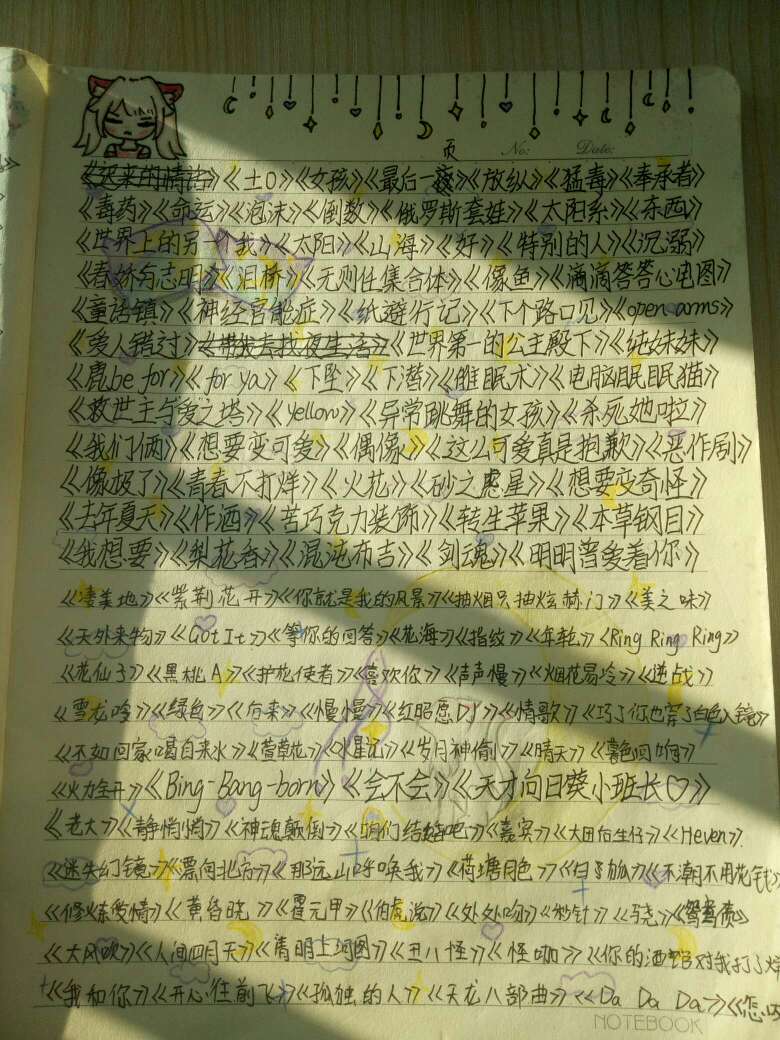 页 No: Date:
《迟来的情话》《土0》《女孩》《最后一夜》《放纵》《猛毒》《奉承者》
《毒药》《命运》《泡沫》《倒数》《俄罗斯套娃》《太阳系》《东西》
《世界上的另一个我》《太阳》《山海》《好》《特别的人》《沉溺》
《春娇与志明》《泪桥》《无则任集合体》《像鱼》《滴滴答答心电图》
《童话镇》《神经官能症》《纸避行记》《下个路口见》《open arms》
《爱人错过》《带我去找夜生活》《世界第一的公主殿下》《纯妹妹》
《鹿be for》《for ya》《下坠》《下潜》《催眠术》《电脑眠眠猫》
《救世主与爱之塔》《yellow》《异常跳舞的女孩》《杀死她啦》
《我们俩》《想要变可爱》《偶像》《这么可爱真是抱歉》《恶作剧》
《像极了》《青春不打烊》《火花》《砂之惑星》《想要变奇怪》
《去年夏天》《作酒》《苦巧克力装饰》《转生苹果》《本草钢目》
《我想要》《梨花香》《混沌布吉》《剑魂》《明明曾爱着你》
《凄美地》《紫荆花开》《你就是我的风景》《抽烟只抽炫赫门》《美之味》
《天外来物》《Got It》《等你的回答》《花海》《指纹》《年轮》《Ring Ring Ring》
《花仙子》《黑桃A》《护花使者》《喜欢你》《声声慢》《烟花易冷》《逆战》
《雪龙吟》《绿色》《后来》《慢慢》《红昭愿DJ》《情歌》《巧了你也穿了白色入镜》
《不如回家喝自来水》《萱草花》《水星记》《岁月神偷》《晴天》《暮色回响》
《火力全开》《Bing-Bang-born》《会不会》《天才向日葵小班长♡》
《老大》《静悄悄》《神魂颠倒》《咱们结婚吧》《嘉宾》《大田后生仔》《Heven》
《迷失幻镜》《漂向北方》《那远山呼唤我》《荷塘月色》《白月加力》《不潮不用花钱》
《修炼爱情》《黄昏晓》《霍元甲》《伯虎说》《处处吻》《秒针》《骁》《鸳鸯债》
《大风吹》《人间四月天》《清明上河图》《丑八怪》《怪咖》《你的酒馆对我打了烊
《我和你》《开心往前飞》《孤独的人》《天龙八部曲》《Da Da Da》《您
NOTEBOOK